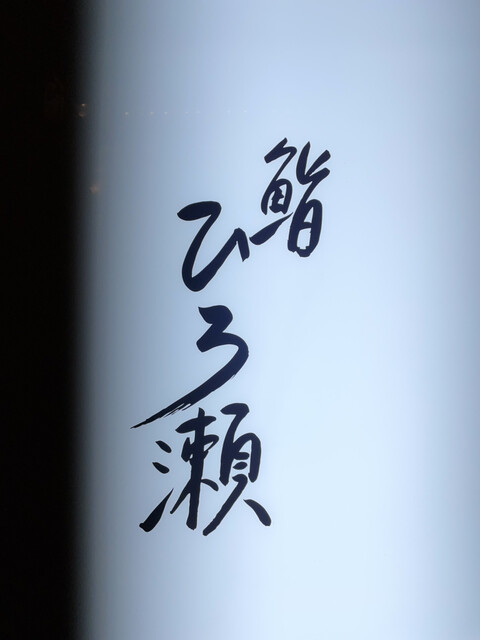 鮨
ひろ瀬